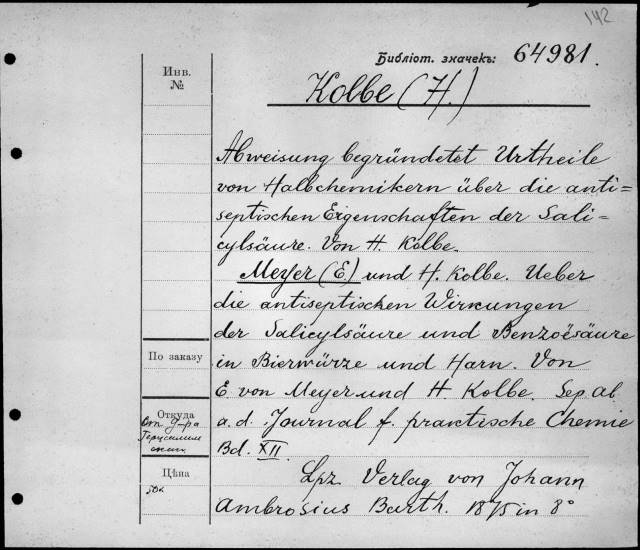 142
Библіот. значекъ: 64981.
Инв.
№
Kolbe (H.)
Abweisung begründetet Urtheile
von Halbchemikern über die anti=
septischen Eigenschaften der Sali=
cylsäure. Von H. Kolbe.
Meyer (E.) und H. Kolbe. Ueber
die antiseptischen Wirkungen
der Salicylsäure und Benzoësäure
По заказу
in Bierwürze und Harn. Von
E von Meyer und H Kolbe. Sep. ab.
Откуда
От д-ра
a. d. Journal f. praktische Chemie
Bd. XII.
Цѣна
50к
Lpz Verlag von Johann
Ambrosius Barth. 1875 in 8°